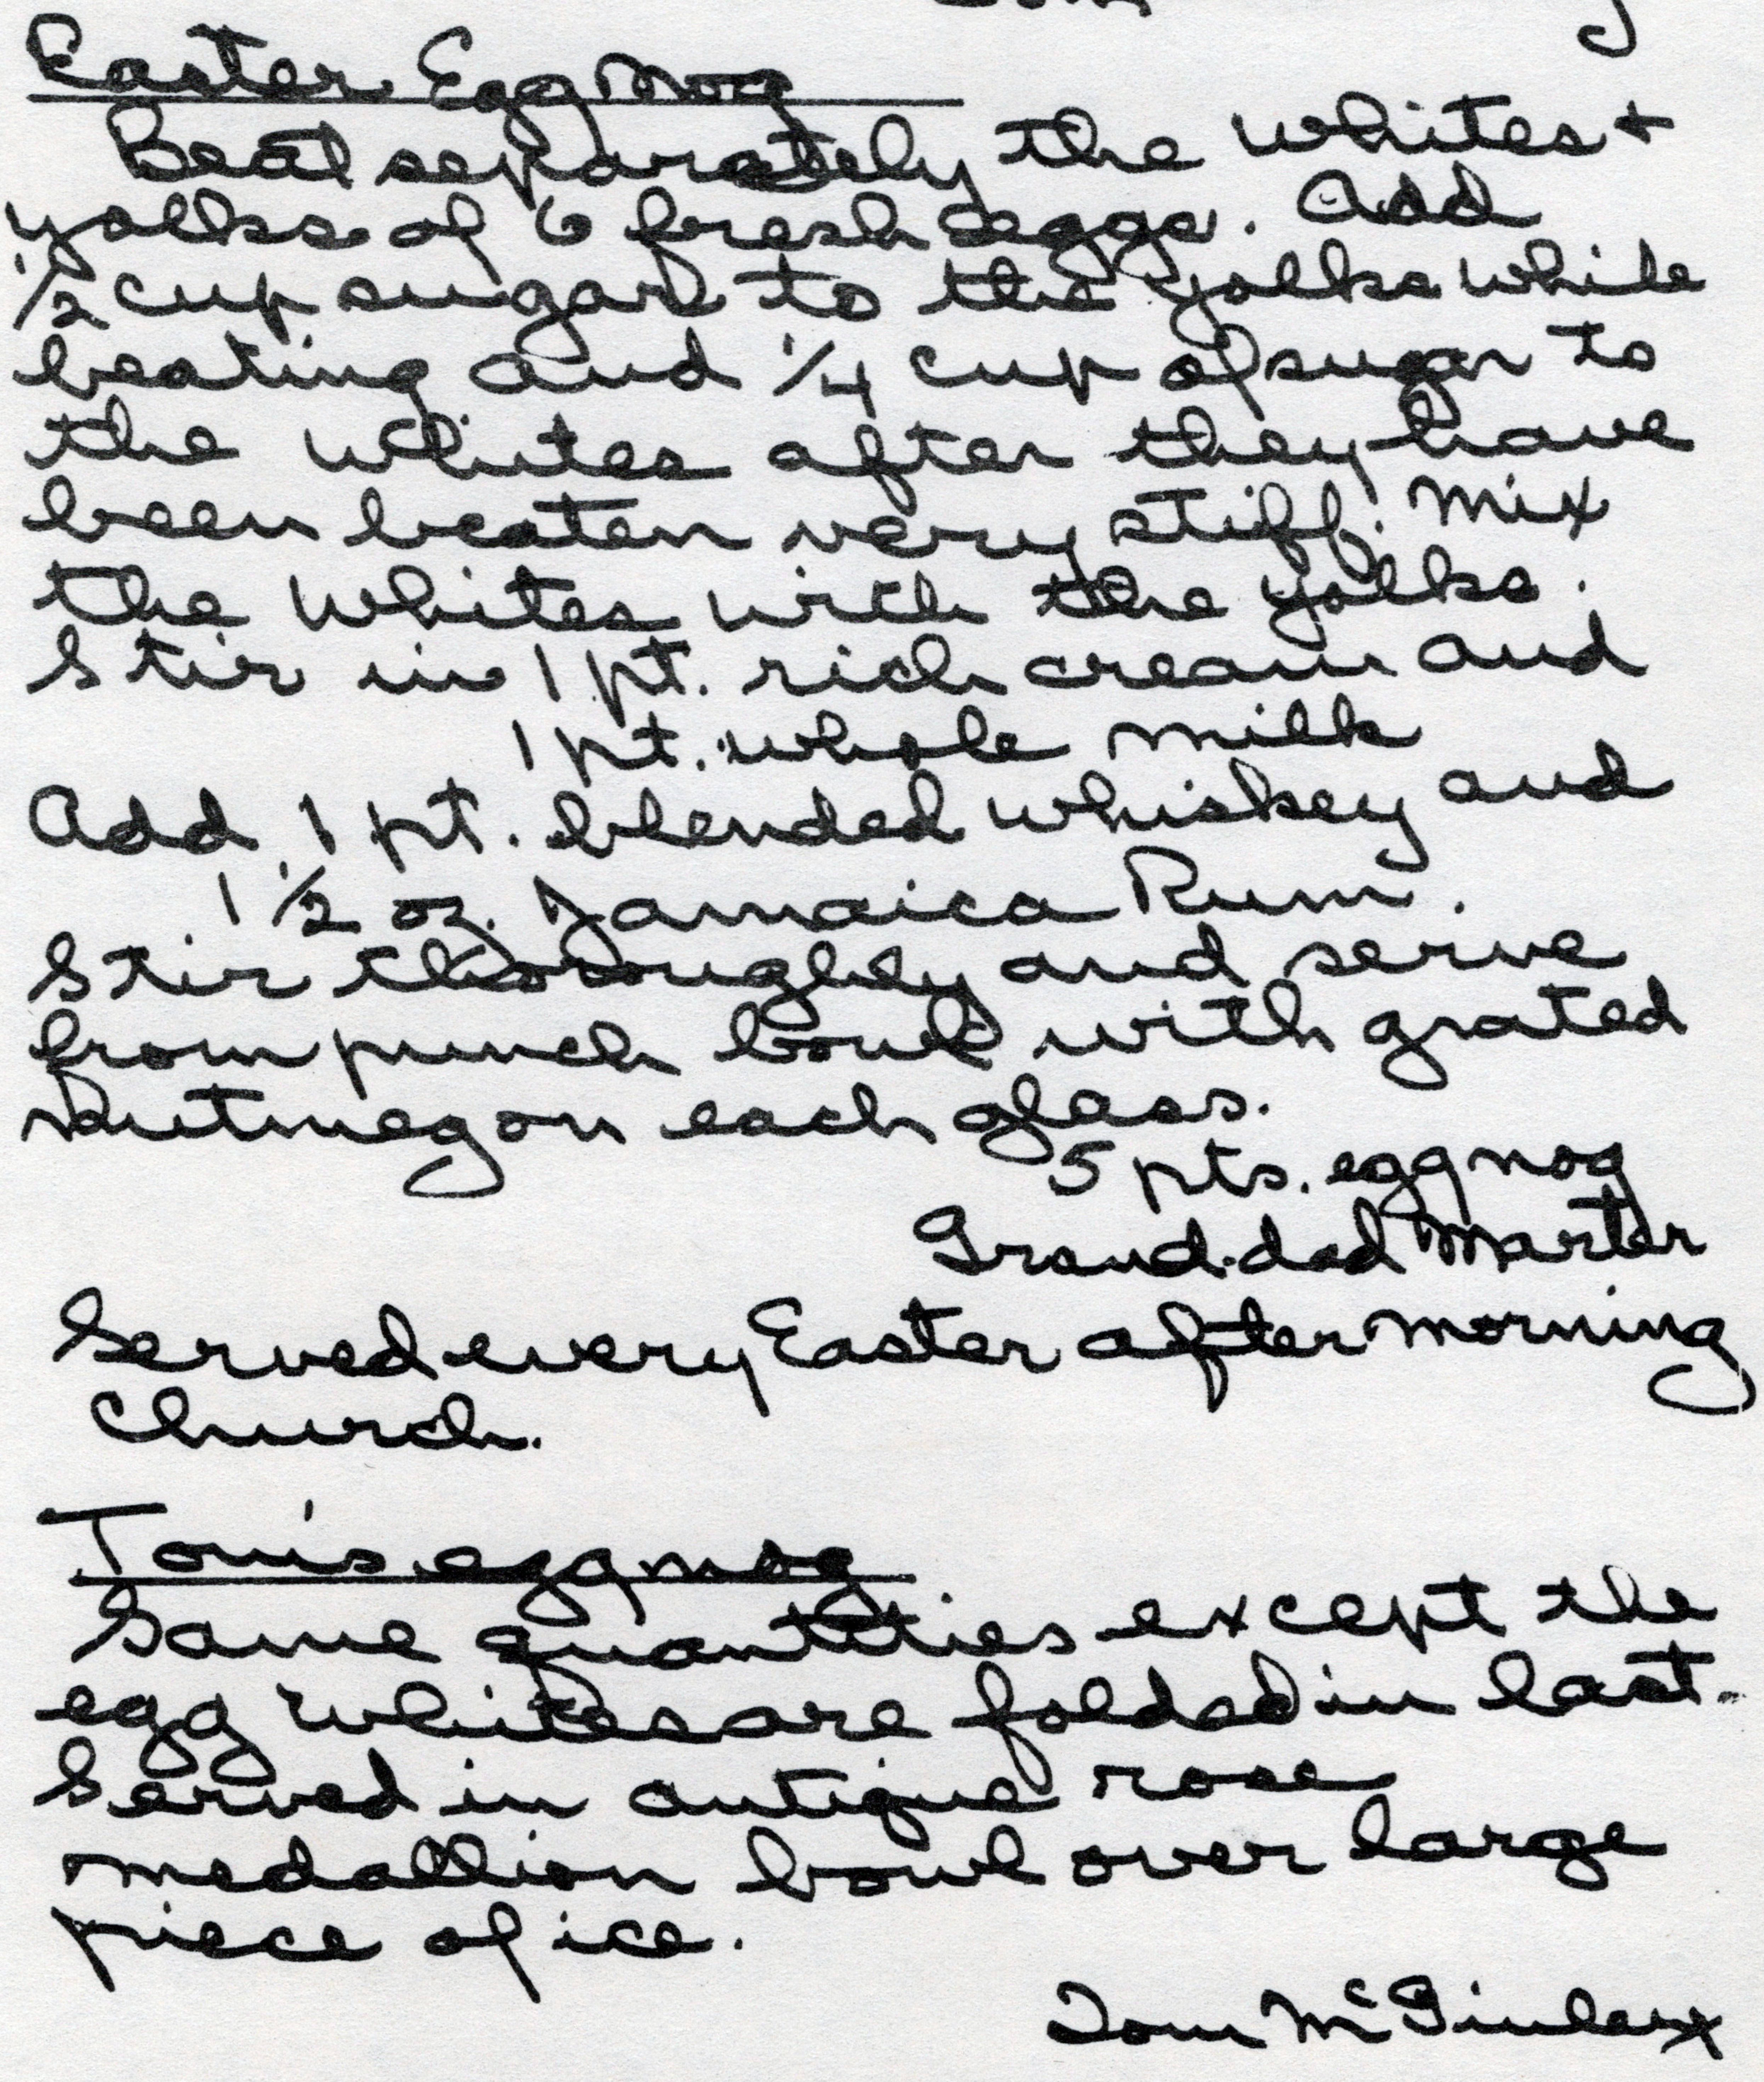 Easter Egg Nog
Beat separately the whites +
yolks of 6 fresh eggs. Add
1/2 cup sugar to the yolks while
beating and 1/4 cup of sugar to
the whites after they have
been beaten very stiff. Mix
the whites with the yolks.
Stir in 1 pt. rich cream and
1 pt. whole milk
Add 1 pt. blended whiskey and
1 1/2 oz. Jamaica Rum.
Stir thoroughly and serve
from punch bowl with grated
Nutmeg on each glass.
5 pts. eggnog
Grand-dad Marter
Served every Easter after morning
Church.
Tom's eggnog
Same quantities except the
egg whites are folded in last.
Served in antique rose
medallion bowl over large
piece of ice.
Tom